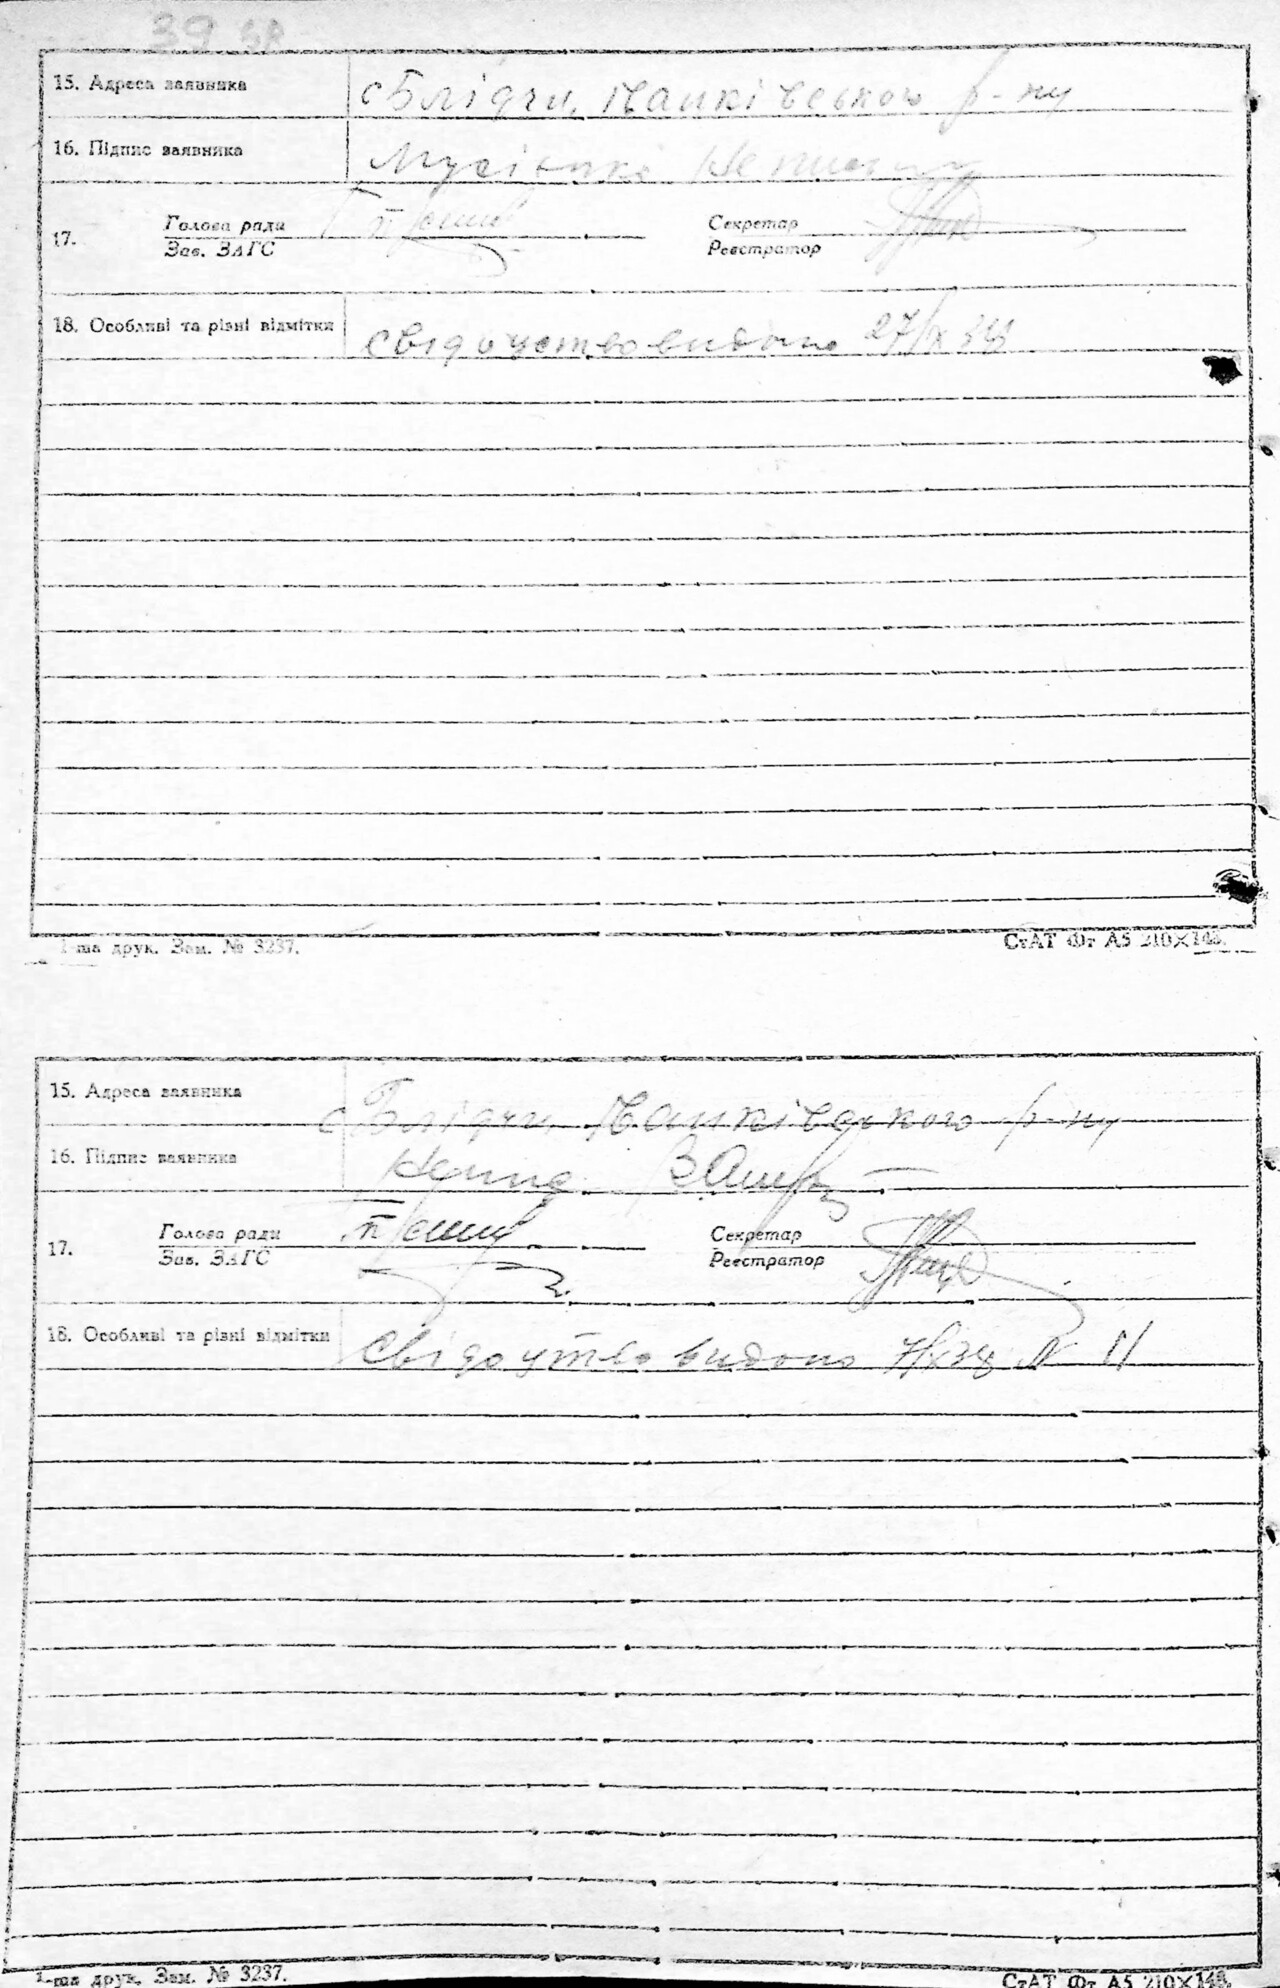 39 38
15. Адреса заявника с Блідчи, Іванківського р-ну
16. Підпис заявника
17. Голова ради Секретар
Зав. ЗАГС Реєстратор
18. Особливі та різні відмітки свідоцтво видано 27/ІХ 38
1-ша друк. Зам. № 3237. СтАТ Фт А5 210×148.
15. Адреса заявника с Блідчи, Іванківського р-ну
16. Підпис заявника
17. Голова ради Секретар
Зав. ЗАГС Реєстратор
18. Особливі та різні відмітки Свідоцтво видано 7/Х 38 N 11
1-ша друк. Зам. № 3237. СтАТ Фт А5 210×148.